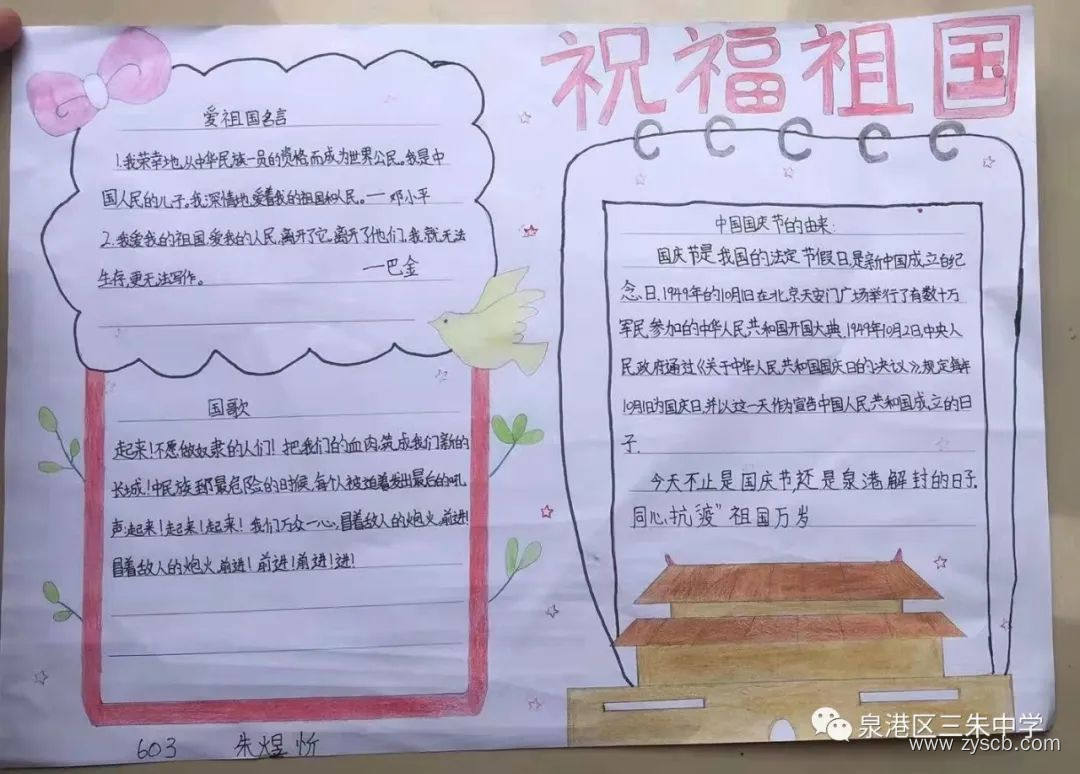 祝福祖国
爱祖国名言
1.我荣幸地,从中华民族一员的资格而成为世界公民。我是中
国人民的儿子。我深情地爱着我的祖国和人民。——邓小平
2.我爱我的祖国,爱我的人民,离开了它,离开了他们,我就无法
生存,更无法写作。 —巴金
国歌
起来!不愿做奴隶的人们!把我们的血肉筑成我们新的
长城!中民族到最危险的时候,每个人被迫着发出最后的吼
声,起来!起来!起来!我们万众一心,冒着敌人的炮火,前进!
冒着敌人的炮火,前进!前进!前进!进!
中国国庆节的由来:
国庆节是我国的法定节假日是新中国成立的纪
念日,1949年的10月1日在北京天安门广场举行了有数十万
军民参加的中华人民共和国开国大典,1949年10月2日,中央人
民政府通过《关于中华人民共和国国庆日的决议》规定每年
10月1日为国庆日,并以这一天作为宣告中国人民共和国成立的日
子.
今天不止是国庆节,还是泉港解封的日子.
同心抗疫"祖国万岁
603 朱煜忻
泉港区三朱中学
www.zyscb.com